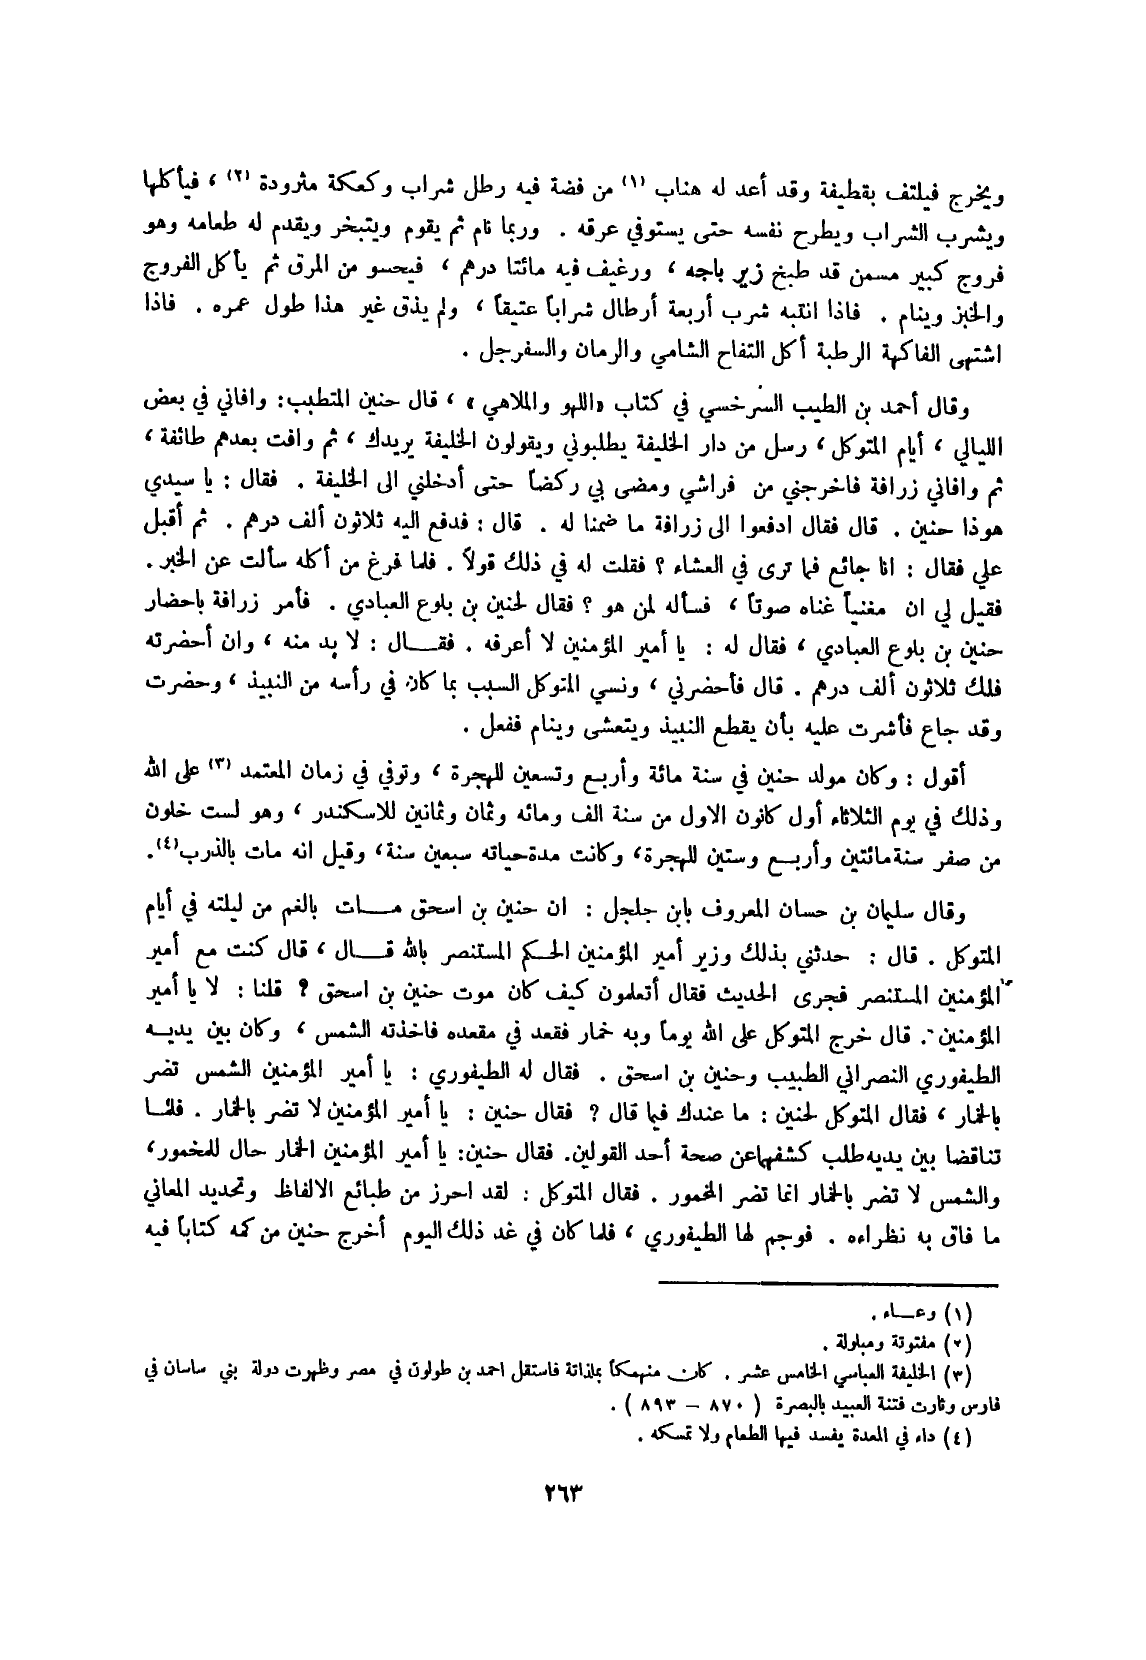 ويخرج فيلتف بقطيفة وقد أعد له هناب (١) من فضة فيه رطل شراب وكعكة مثرودة (٢) ، فيأكلها
ويشرب الشراب ويطرح نفسه حتى يستوفي عرقه . وربما نام ثم يقوم ويتبخر ويقدم له طعامه وهو
فروج كبير مسمن قد طبخ زير باجه ، ورغيف فيه مائتا درهم ، فيحسو من المرق ثم يأكل الفروج
والخبز وينام . فاذا انتبه شرب أربعة أرطال شراباً عتيقاً ، ولم يذق غير هذا طول عمره . فاذا
اشتهى الفاكهة الرطبة أكل التفاح الشامي والرمان والسفرجل .
وقال أحمد بن الطيب السرخسي في كتاب «اللهو والملاهي» ، قال حنين المتطبب: وافاني في بعض
الليالي ، أيام المتوكل ، رسل من دار الخليفة يطلبوني ويقولون الخليفة يريدك ، ثم وافت بعدهم طائفة ،
ثم وافاني زرافة فاخرجني من فراشي ومضى بي ركضاً حتى أدخلني الى الخليفة . فقال : يا سيدي
هوذا حنين . قال فقال ادفعوا الى زرافة ما ضمنا له . قال : فدفع اليه ثلاثون ألف درهم . ثم أقبل
علي فقال : انا جائع فما ترى في العشاء ؟ فقلت له في ذلك قولاً . فلما فرغ من أكله سألت عن الخبر .
فقيل لي ان مغنياً غناه صوتاً ، فسأله لمن هو ؟ فقال لحنين بن بلوع العبادي . فأمر زرافة باحضار
حنين بن بلوع العبادي ، فقال له : يا أمير المؤمنين لا أعرفه . فقـــال : لا بد منه ، وان أحضرته
فلك ثلاثون ألف درهم . قال فأحضرني ، ونسي المتوكل السبب بما كان في رأسه من النبيذ ، وحضرت
وقد جاع فأشرت عليه بأن يقطع النبيذ ويتعشى وينام ففعل .
أقول : وكان مولد حنين في سنة مائة وأربع وتسعين للهجرة ، وتوفي في زمان المعتمد (٣) على الله
وذلك في يوم الثلاثاء أول كانون الاول من سنة الف ومائه وثمان وثمانين للاسكندر ، وهو لست خلون
من صفر سنةمائتين وأربـع وستين للهجرة، وكانت مدةحياته سبعين سنة، وقيل انه مات بالذرب(٤).
وقال سليمان بن حسان المعروف بابن جلجل : ان حنين بن اسحق مـــات بالغم من ليلته في أيام
المتوكل . قال : حدثني بذلك وزير أمير المؤمنين الحـكم المستنصر بالله قـــال ، قال كنت مع أمير
المؤمنين المستنصر فجرى الحديث فقال أتعلمون كيف كان موت حنين بن اسحق ؟ قلنا : لا يا أمير
المؤمنين . قال خرج المتوكل على الله يوماً وبه خمار فقعد في مقعده فاخذته الشمس ، وكان بين يديـه
الطيفوري النصراني الطبيب وحنين بن اسحق . فقال له الطيفوري : يا أمير المؤمنين الشمس تضر
بالخمار ، فقال المتوكل لحنين : ما عندك فيما قال ؟ فقال حنين : يا أمير المؤمنين لا تضر بالخمار . فلمـا
تناقضا بين يديه طلب كشفهاعن صحة أحد القولين. فقال حنين: يا أمير المؤمنين الخمار حال للمخمور،
والشمس لا تضر بالخمار انما تضر المخمور . فقال المتوكل : لقد احرز من طبائع الالفاظ وتحديد المعاني
ما فاق به نظراءه . فوجم لها الطيفوري ، فلما كان في غد ذلك اليوم أخرج حنين من كمه كتاباً فيه
(١) وعـاء .
(٢) مفتوتة ومبلولة .
(٣) الخليفة العباسي الخامس عشر . كان منهمكاً بملذاتة فاستقل احمد بن طولون في مصر وظهرت دولة بني ساسان في
فارس وثارت فتنة العبيد بالبصرة ( ٨٧٠ – ٨٩٣ ) .
(٤) داء في المعدة يفسد فيها الطعام ولا تمسكه .
٢٦٣